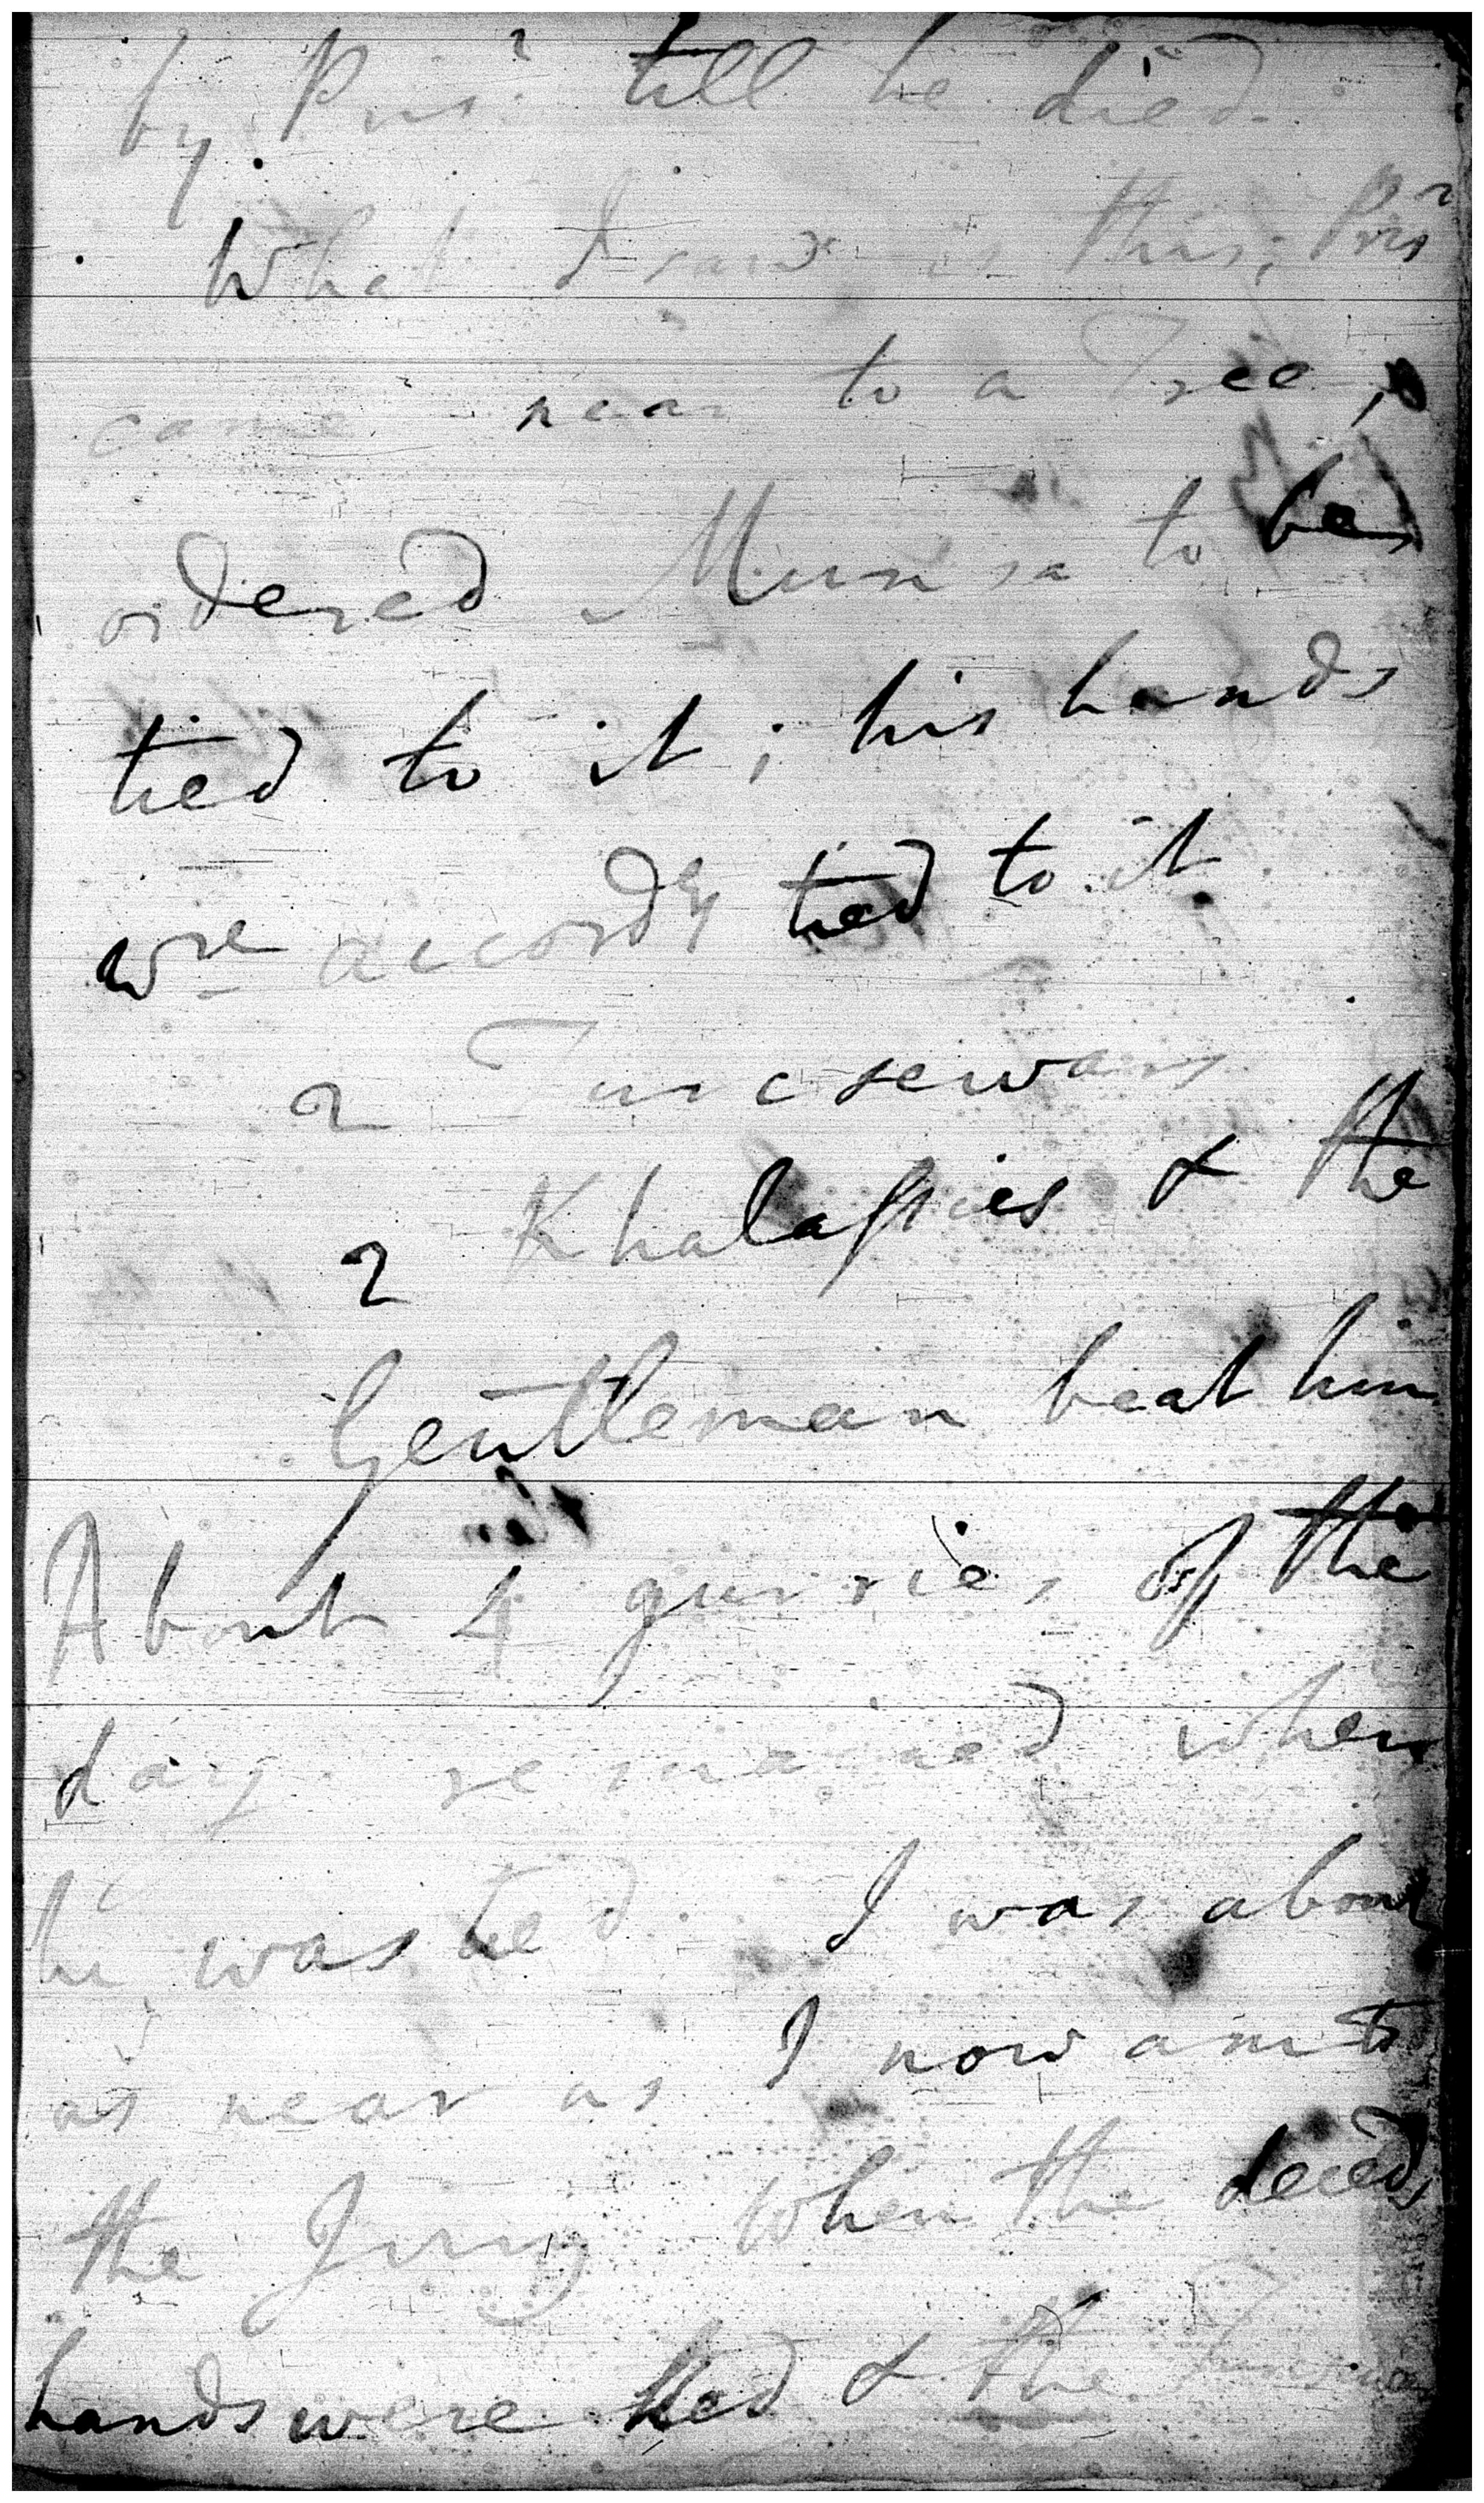 by Pris^r till he died.
What I saw is this; Pris^r
came near to a Tree,
ordered Munsa to be
tied to it; his hands
w^re accord^gy tied to it
2 Turcsewars
2 Khalassies & the
Gentleman beat him
About 4 gurries of the
day remained when
he was tied. I was about
as near as I now am to
the Jury when the deced
hands were tied & the